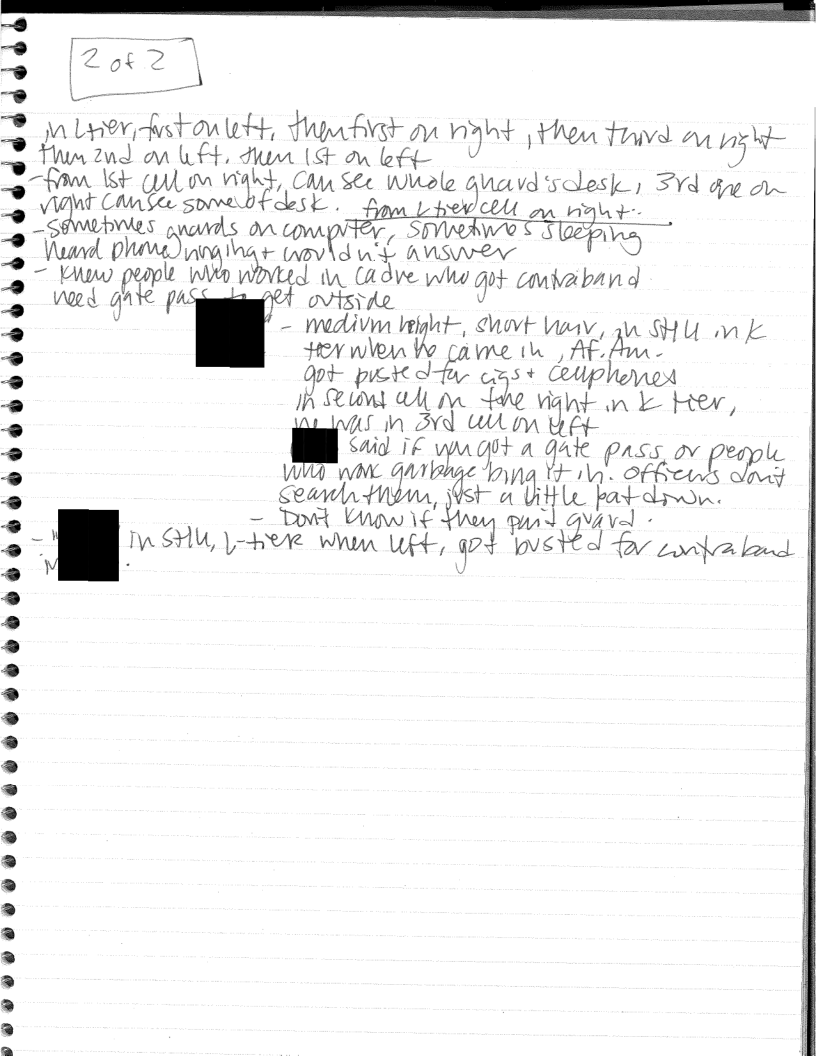 2 of 2
in L tier, first on left, then first on right, then third on right
then 2nd on left, then 1st on left
- from 1st cell on right, can see whole guard's desk, 3rd one on
right can see some of desk. from L tier cell on right.
- sometimes guards on computer, sometimes sleeping
heard phone ringing + wouldn't answer
- knew people who worked in cadre who got contraband
need gate pass to get outside
- medium height, short hair, in SHU in K
tier when he came in, Af. Am.
got busted for cigs + cellphones
in second cell on the right in K tier,
he was in 3rd cell on left
said if you got a gate pass or people
who work garbage bring it in. Officers don't
search them, just a little pat down.
- Don't know if they paid guard.
- in SHU, L-tier when left, got busted for contraband